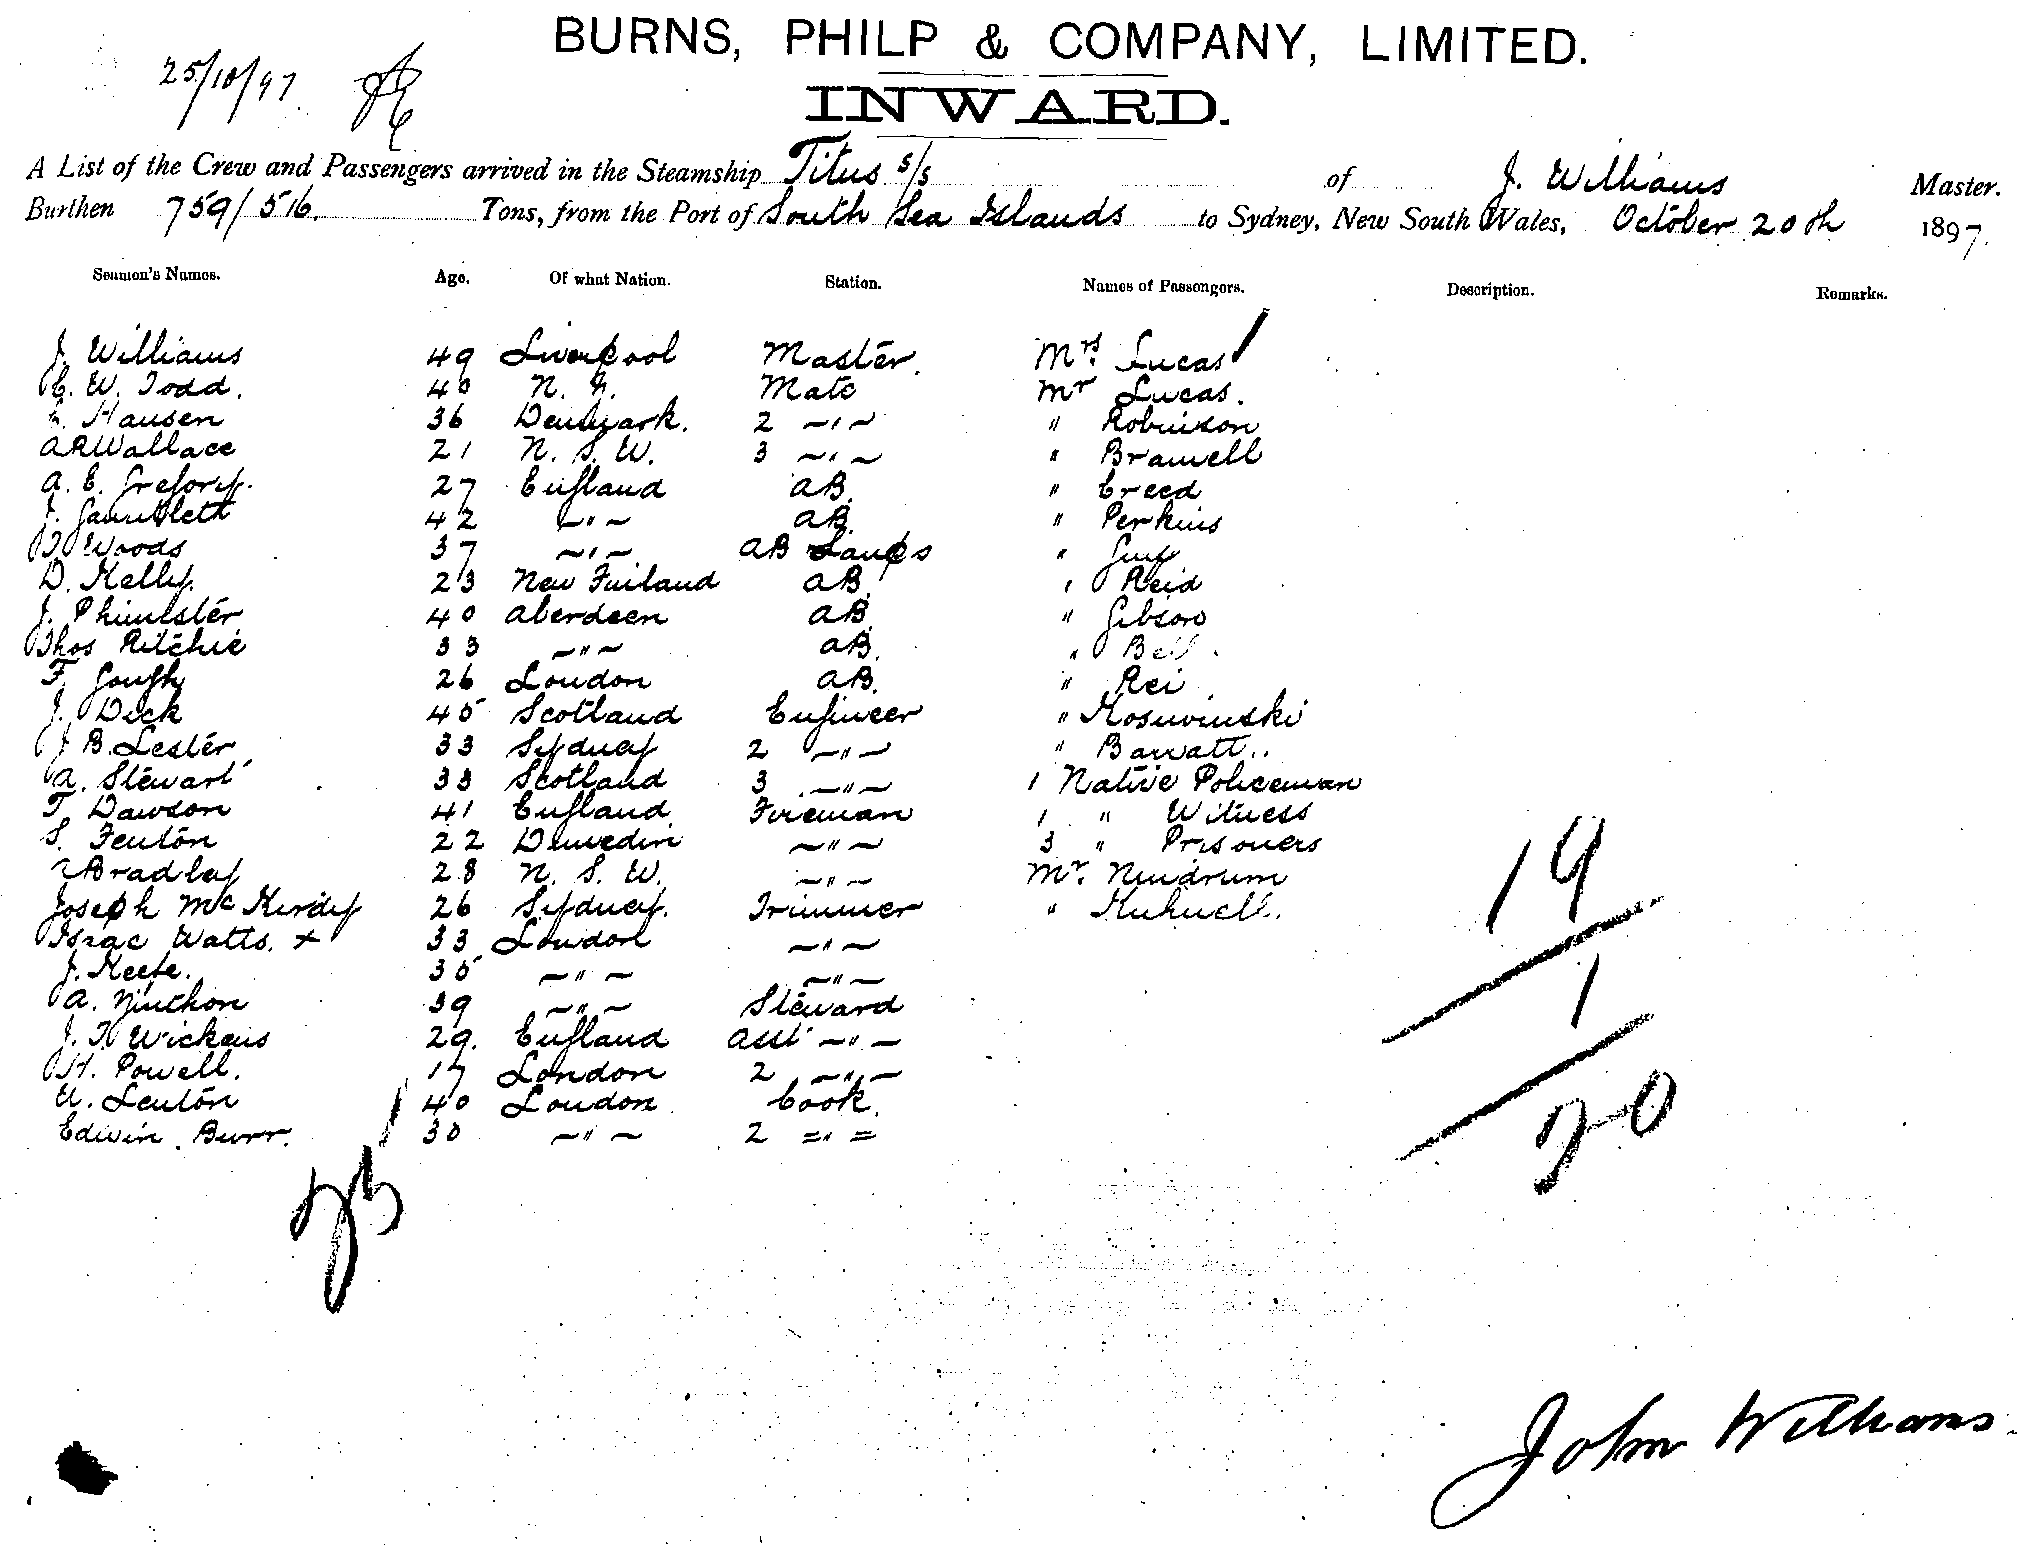 BURNS, PHILP & COMPANY, LIMITED.
25/10/97
INWARD.
A List of the Crew and Passengers arrived in the Steamship Titus s/s of J. Williams Master.
Burthen 759/516. Tons, from the Port of South Sea Islands to Sydney, New South Wales, October 20th 1897.
Seamen's Names. Age. Of what Nation. Station. Names of Passengers. Description. Remarks.
J. Williams 49 Liverpool Master. Mrs. Lucas
C. W. Todd. 40 Mate Mr Lucas.
Hansen 36 Denmark. 2 -"- " Robinson
A R Wallace 21 N. S. W. 3 -"- " Bramell
A. E. Gregory. 27 England AB. " Creed
J. Gauntlett 42 -"- AB. " Perkins
T Woods 37 -"- AB Lamps " Guy
D. Kelly. 23 AB. " Reid
J. Phimister 40 Aberdeen AB. " Gibson
Thos Ritchie 33 -"- AB. " Bell.
F. Gough 26 London AB. " Rei
J. Dick 45 Scotland Engineer "
J B. Lester 33 Sydney 2 -"- " Barratt..
A. Stewart 33 Scotland 3 -"- 1 Native Policeman
T Dawson 41 England Fireman 1 " Witness
S. Fenton 22 Dunedin -"- 3 " Prisoners
Bradley 28 N. S. W. -"- Mr.
Joseph McKirdy 26 Sydney. Trimmer "
Isaac Watts. + 33 London -"-
J. Keefe. 35 -"- -"-
A. 39 -"- Steward
J. T. Wickens 29. England Asst -"-
H. Powell. 17 London 2 -"-
Lenton 40 London Cook.
Edwin Burr. 30 -"- 2 ="=
25
19
1
20
John Williams.